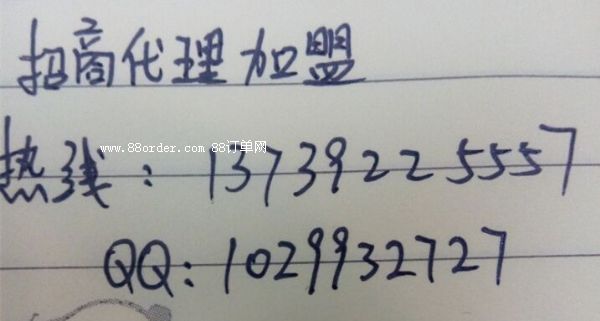 招商代理加盟
www.88order.com 88订单网
热线：13739225557
QQ：1029932727